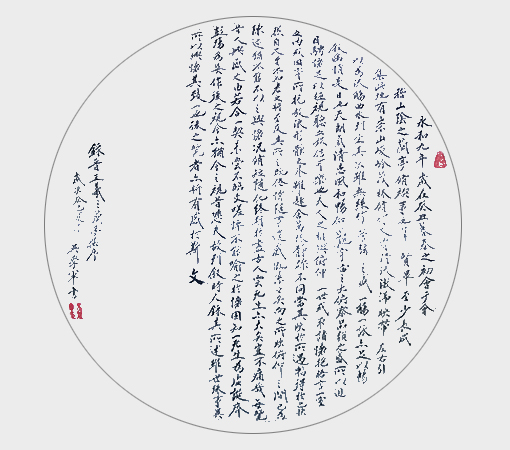 永和九年歲在癸丑暮春之初會于會
稽山陰之蘭亭修禊事也羣賢畢至少長咸
集此地有崇山峻嶺茂林修竹又有清流激湍映帶左右引
以為流觴曲水列坐其次雖無絲竹管弦之盛一觴一詠亦足以暢
敘幽情是日也天朗氣清惠風和暢仰觀宇宙之大俯察品類之盛所以遊
目騁懷足以極視聽之娛信可樂也夫人之相與俯仰一世或取諸懷抱晤言一室
之內或因寄所託放浪形骸之外雖趣舍萬殊靜躁不同當其欣於所遇暫得於己快
然自足不知老之將至及其所之既倦情隨事遷感慨係之矣向之所欣俯仰之間已為
陳迹猶不能不以之興懷況修短隨化終期於盡古人云死生亦大矣豈不痛哉每覽
昔人興感之由若合一契未嘗不臨文嗟悼不能喻之於懷固知一死生為虛誕齊
彭殤為妄作後之視今亦猶今之視昔悲夫故列敘時人錄其所述雖世殊事異
所以興懷其致一也後之覽者亦將有感於斯文
錄晉王羲之蘭亭集序